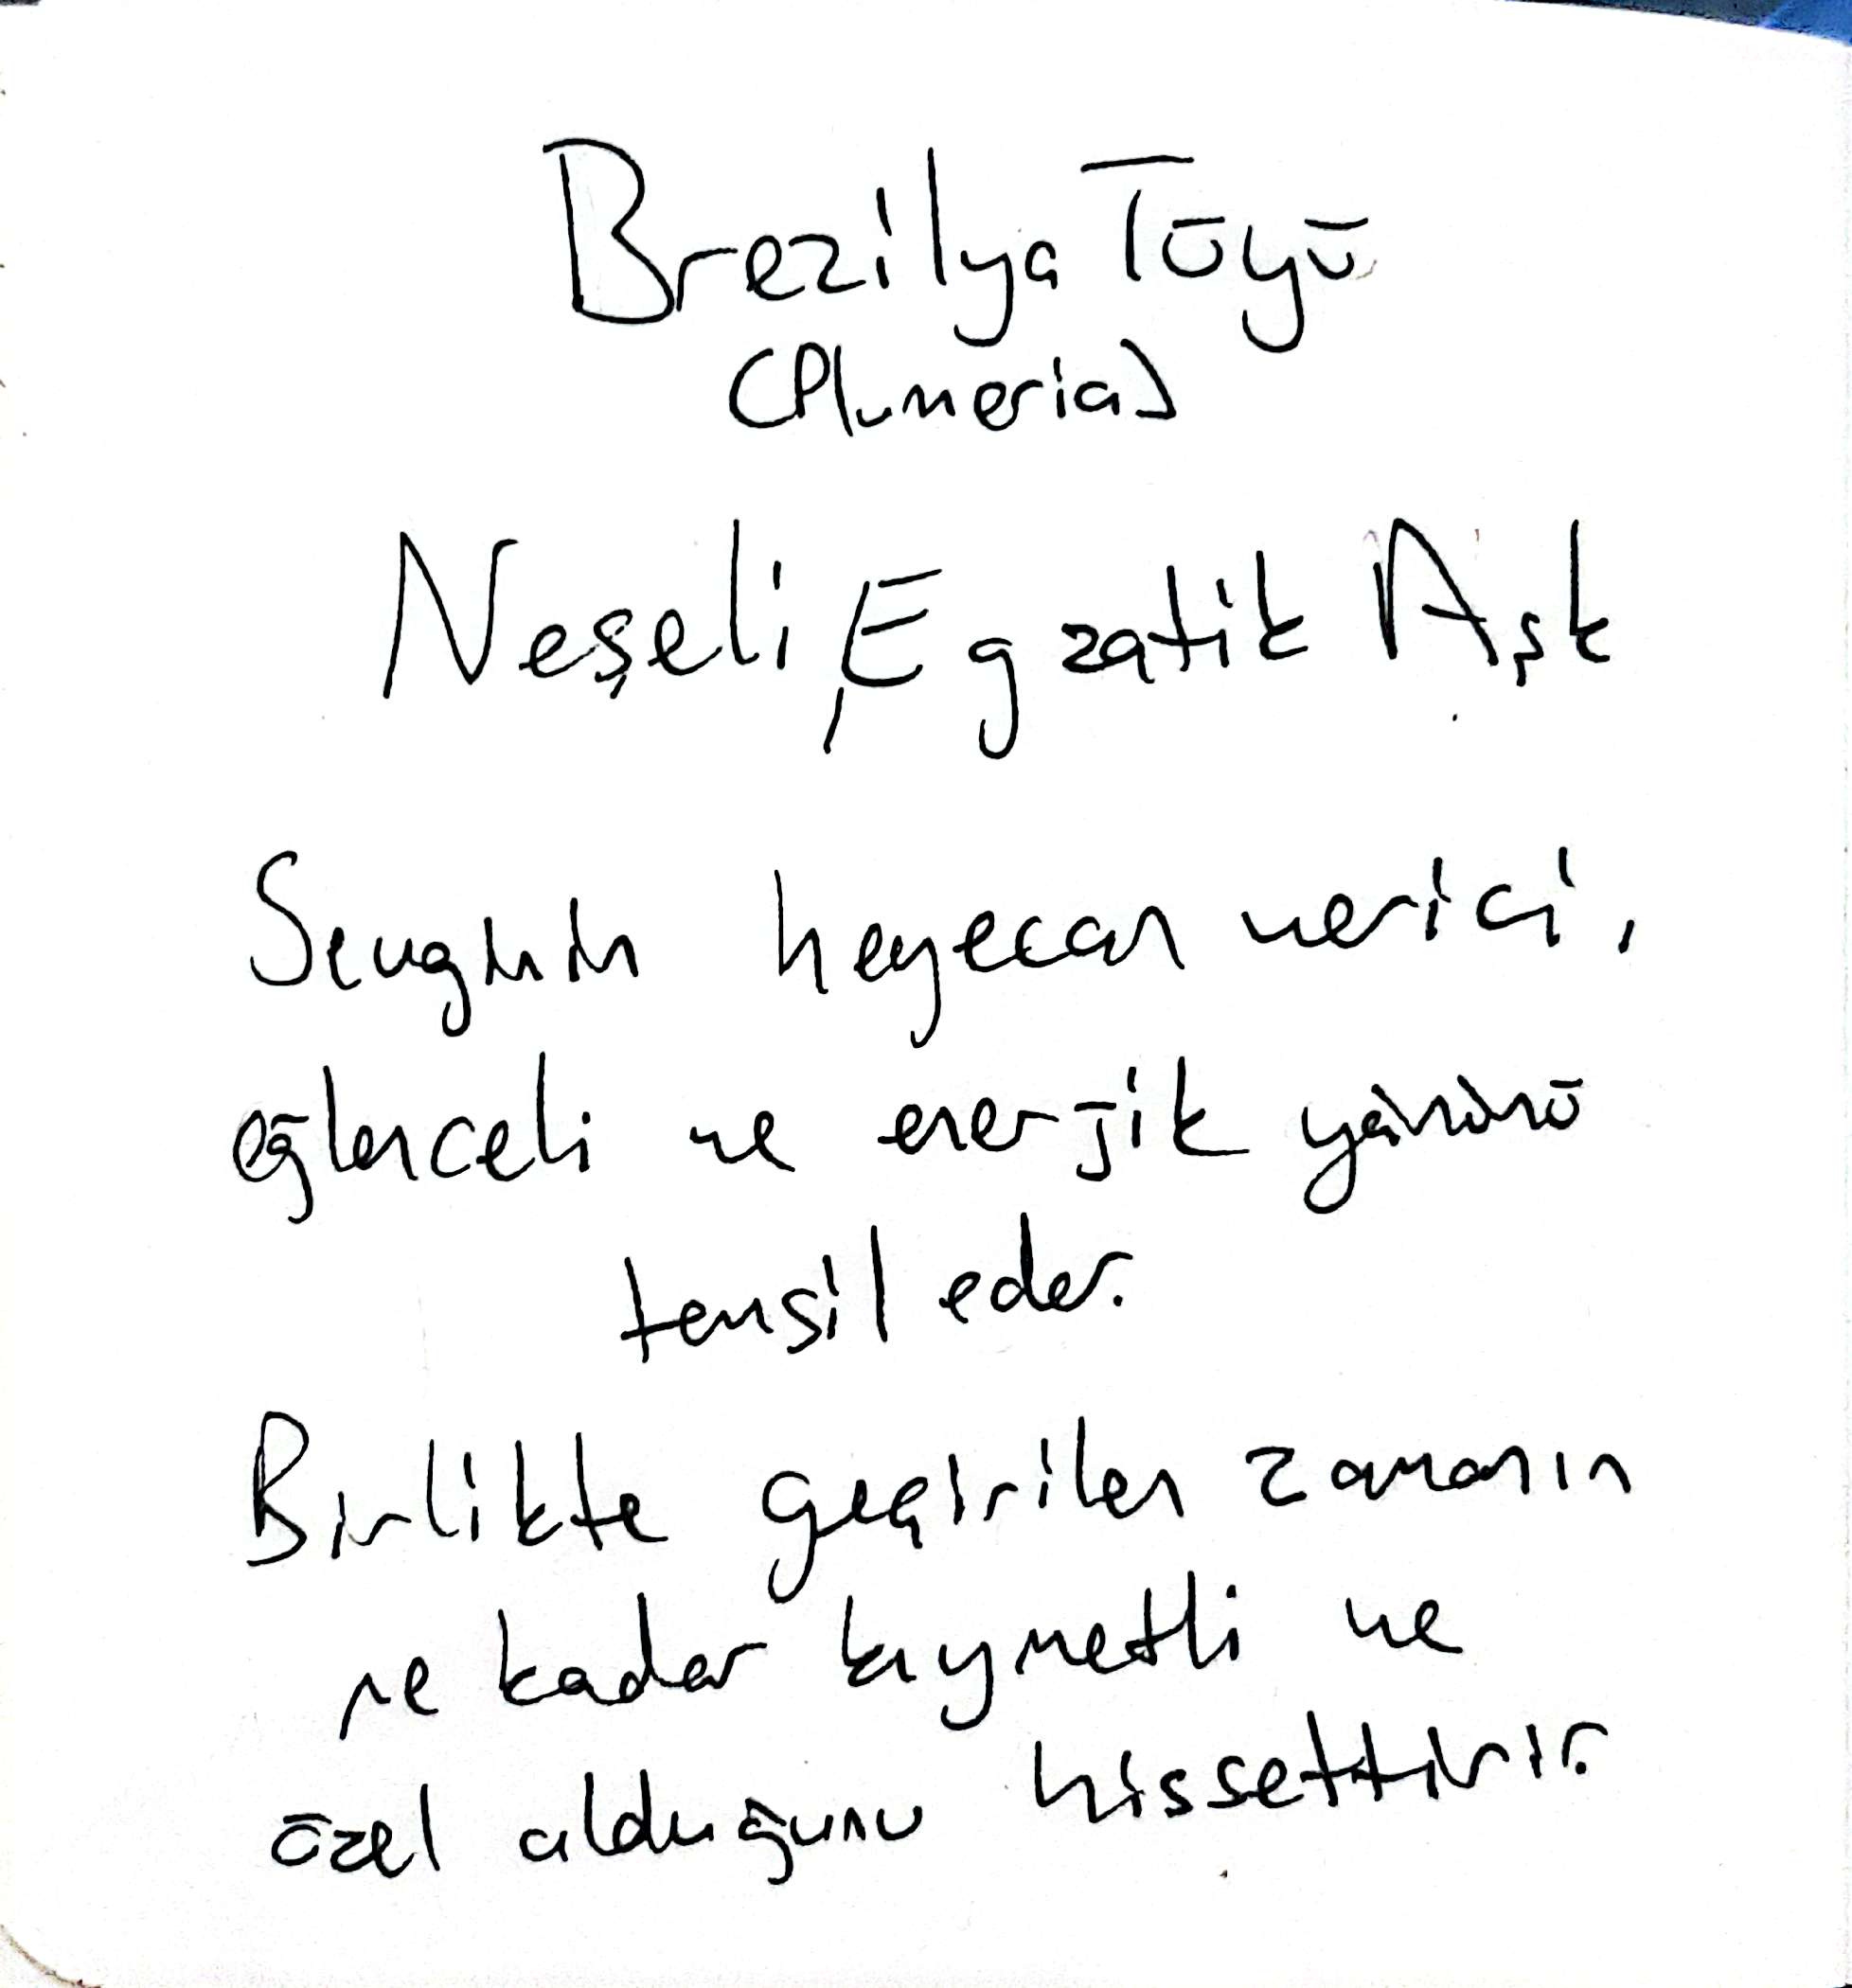 Brezilya Tüyü
(Plumeria)
Neşeli, Egzotik Aşk
Sevginin heyecan verici,
eğlenceli ve enerjik yönünü
temsil eder.
Birlikte geçirilen zamanın
ne kadar kıymetli ve
özel olduğunu hissettirir.